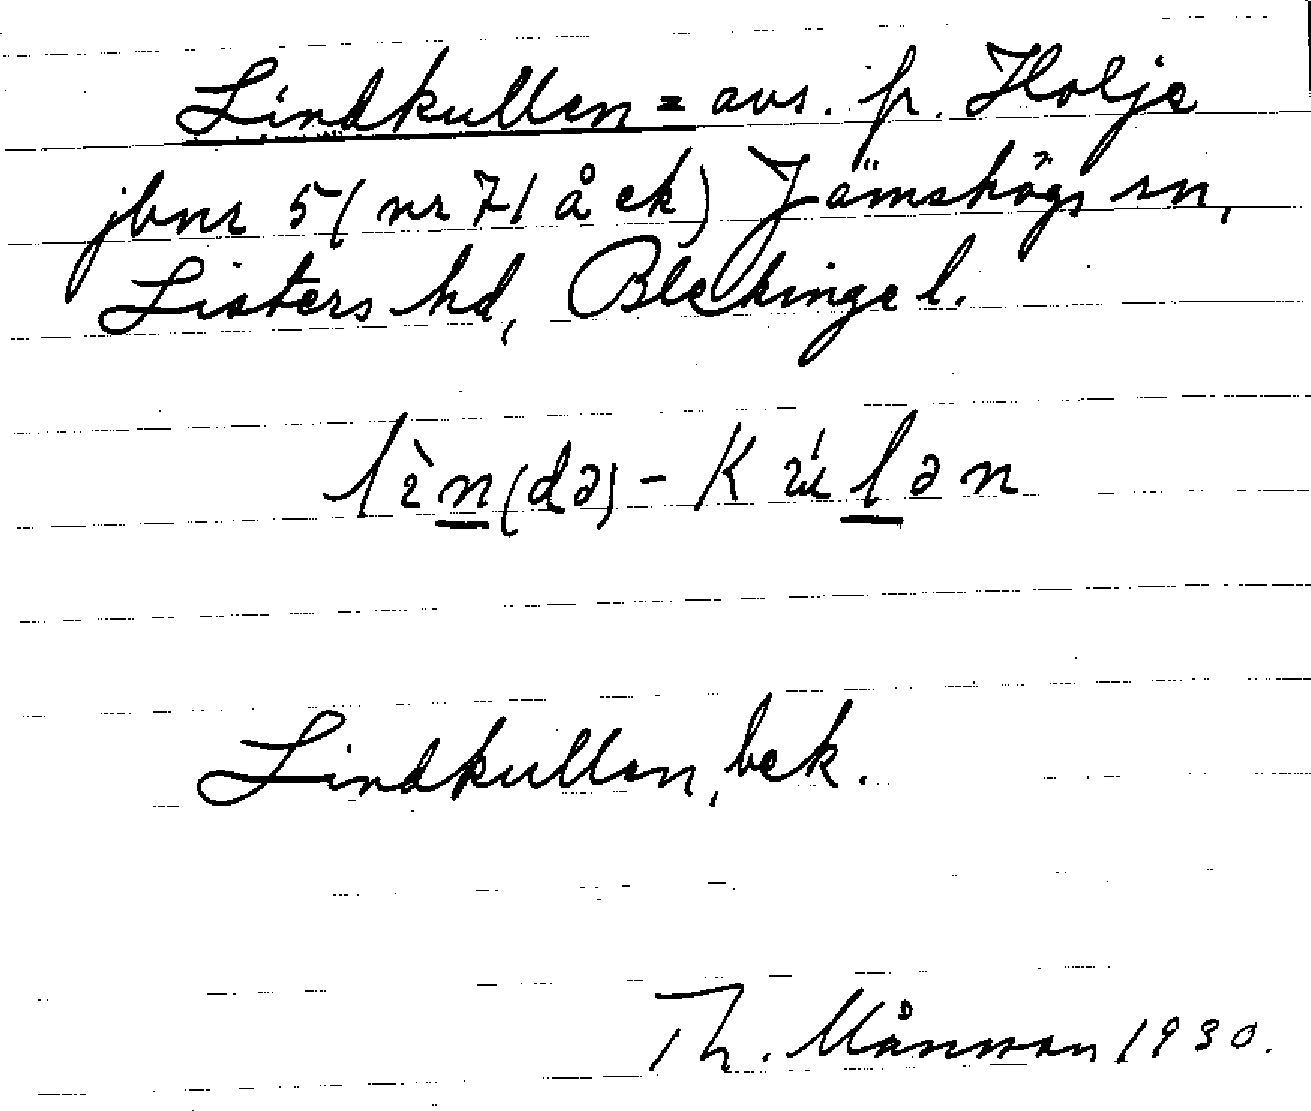 Lindkullen = avs. fr. Holje
jbnr 5 (nr 71 å ek) Jämshögs sn,
Listers hd, Blekinge l.
lìn(də)-kúlən
Lindkullen, bek.
Th. Månsson 1930.